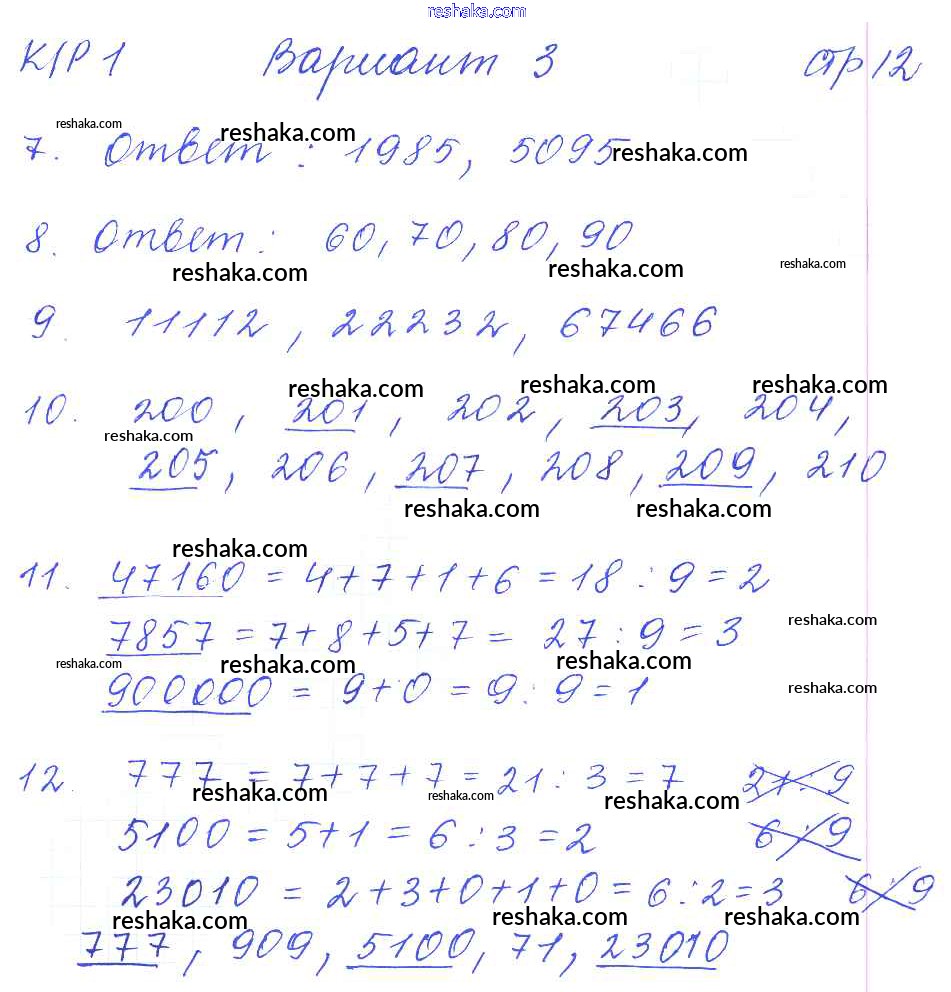 reshaka.com
К/Р 1 Вариант 3 стр 12
reshaka.com reshaka.com
7. Ответ: 1985, 5095 reshaka.com
8. Ответ: 60, 70, 80, 90
reshaka.com reshaka.com reshaka.com
9. 11112, 22232, 67466
reshaka.com reshaka.com reshaka.com
10. 200, 201, 202, 203, 204,
reshaka.com
205, 206, 207, 208, 209, 210
reshaka.com reshaka.com
reshaka.com
11. 47160 = 4+7+1+6 = 18 : 9 = 2
7857 = 7+8+5+7 = 27 : 9 = 3 reshaka.com
reshaka.com reshaka.com reshaka.com
900000 = 9+0 = 9 : 9 = 1 reshaka.com
12. 777 = 7+7+7 = 21 : 3 = 7 21 : 9
reshaka.com reshaka.com reshaka.com
5100 = 5+1 = 6 : 3 = 2 6 : 9
23010 = 2+3+0+1+0 = 6 : 2 = 3 6 : 9
reshaka.com reshaka.com reshaka.com
777, 909, 5100, 71, 23010